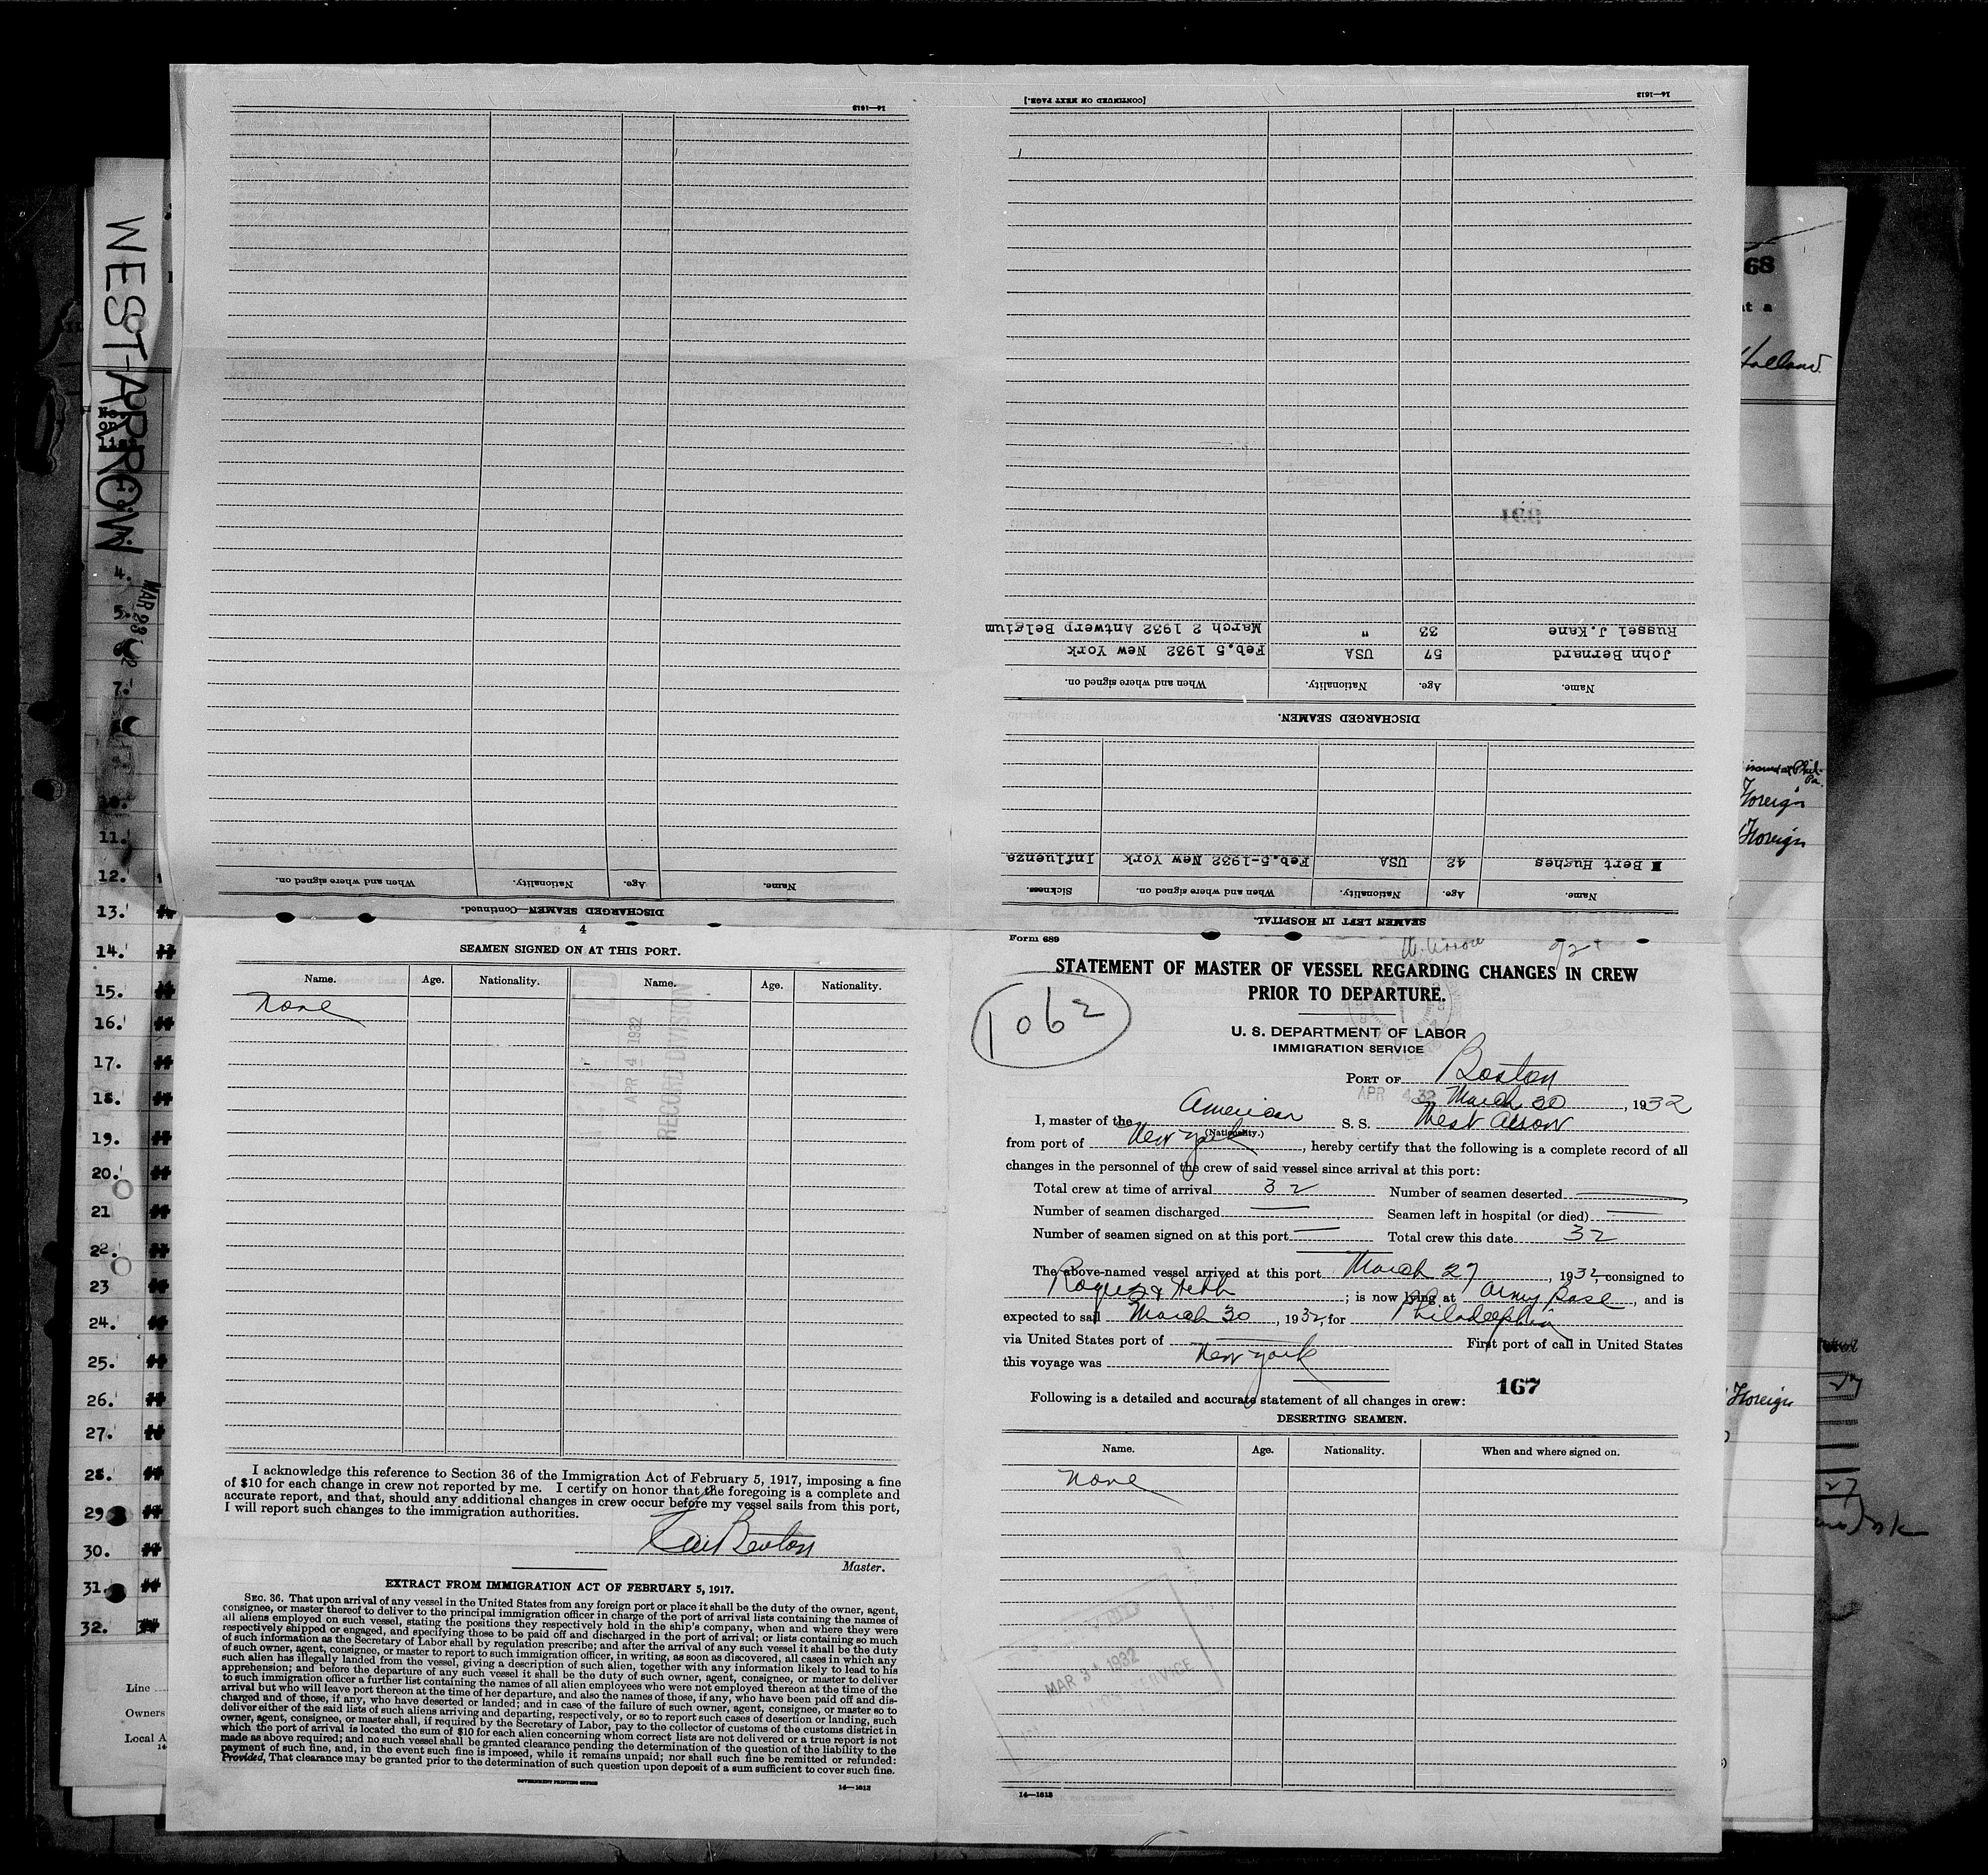 WEST ARROW
MAR 23 32
No.
on
list
4.
5.
7.
10.
11.
12.
13.
14.
15.
16.
17.
18.
19.
20.
21
22.
23
24.
25.
26.
27.
28.
29
30.
31.
32.
Line
Owners
Local A
68
at a
Holland.
issued at Phil-
Pa.
Foreign
Foreign
Foreign
14—1613
DISCHARGED SEAMEN—Continued.
Name. Age. Nationality. When and where signed on.
[CONTINUED ON NEXT PAGE.]
14—1613
SEAMEN LEFT IN HOSPITAL.
Name. Age. Nationality. When and where signed on. Sickness.
Bert Hughes 42 USA Feb.5-1932 New York Influenza
DISCHARGED SEAMEN.
Name. Age. Nationality. When and where signed on.
John Bernard 57 USA Feb.5 1932 New York
Russel J.Kane 33 " March 2 1932 Antwerp Belgium
4
SEAMEN SIGNED ON AT THIS PORT.
Name. Age. Nationality. Name. Age. Nationality.
None
APR 4 1932
RECORD DIVISION
I acknowledge this reference to Section 36 of the Immigration Act of February 5, 1917, imposing a fine
of $10 for each change in crew not reported by me. I certify on honor that the foregoing is a complete and
accurate report, and that, should any additional changes in crew occur before my vessel sails from this port,
I will report such changes to the immigration authorities.
Master.
EXTRACT FROM IMMIGRATION ACT OF FEBRUARY 5, 1917.
SEC. 36. That upon arrival of any vessel in the United States from any foreign port or place it shall be the duty of the owner, agent,
consignee, or master thereof to deliver to the principal immigration officer in charge of the port of arrival lists containing the names of
all aliens employed on such vessel, stating the positions they respectively hold in the ship's company, when and where they were
respectively shipped or engaged, and specifying those to be paid off and discharged in the port of arrival; or lists containing so much
of such information as the Secretary of Labor shall by regulation prescribe; and after the arrival of any such vessel it shall be the duty
of such owner, agent, consignee, or master to report to such immigration officer, in writing, as soon as discovered, all cases in which any
such alien has illegally landed from the vessel, giving a description of such alien, together with any information likely to lead to his
apprehension; and before the departure of any such vessel it shall be the duty of such owner, agent, consignee, or master to deliver
to such immigration officer a further list containing the names of all alien employees who were not employed thereon at the time of the
arrival but who will leave port thereon at the time of her departure, and also the names of those, if any, who have been paid off and dis-
charged and of those, if any, who have deserted or landed; and in case of the failure of such owner, agent, consignee, or master so to
deliver either of the said lists of such aliens arriving and departing, respectively, or so to report such cases of desertion or landing, such
owner, agent, consignee, or master shall, if required by the Secretary of Labor, pay to the collector of customs of the customs district in
which the port of arrival is located the sum of $10 for each alien concerning whom correct lists are not delivered or a true report is not
made as above required; and no such vessel shall be granted clearance pending the determination of the question of the liability to the
payment of such fine, and, in the event such fine is imposed, while it remains unpaid; nor shall such fine be remitted or refunded:
Provided, That clearance may be granted prior to the determination of such question upon deposit of a sum sufficient to cover such fine.
GOVERNMENT PRINTING OFFICE 14—1613
Form 689
W. Arrow
STATEMENT OF MASTER OF VESSEL REGARDING CHANGES IN CREW
PRIOR TO DEPARTURE.
1062
U. S. DEPARTMENT OF LABOR
IMMIGRATION SERVICE
PORT OF Boston
APR 4 32
March 30, 1932
I, master of the American S. S. West Arrow
(Nationality.)
from port of New York, hereby certify that the following is a complete record of all
changes in the personnel of the crew of said vessel since arrival at this port:
Total crew at time of arrival 32 Number of seamen deserted
Number of seamen discharged Seamen left in hospital (or died)
Number of seamen signed on at this port Total crew this date 32
The above-named vessel arrived at this port March 27, 1932, consigned to
Rogers & Webb; is now lying at Army Base, and is
expected to sail March 30, 1932, for Philadelphia
via United States port of First port of call in United States
this voyage was New York
167
Following is a detailed and accurate statement of all changes in crew:
DESERTING SEAMEN.
Name. Age. Nationality. When and where signed on.
None
MAR 31 1932
14—1613